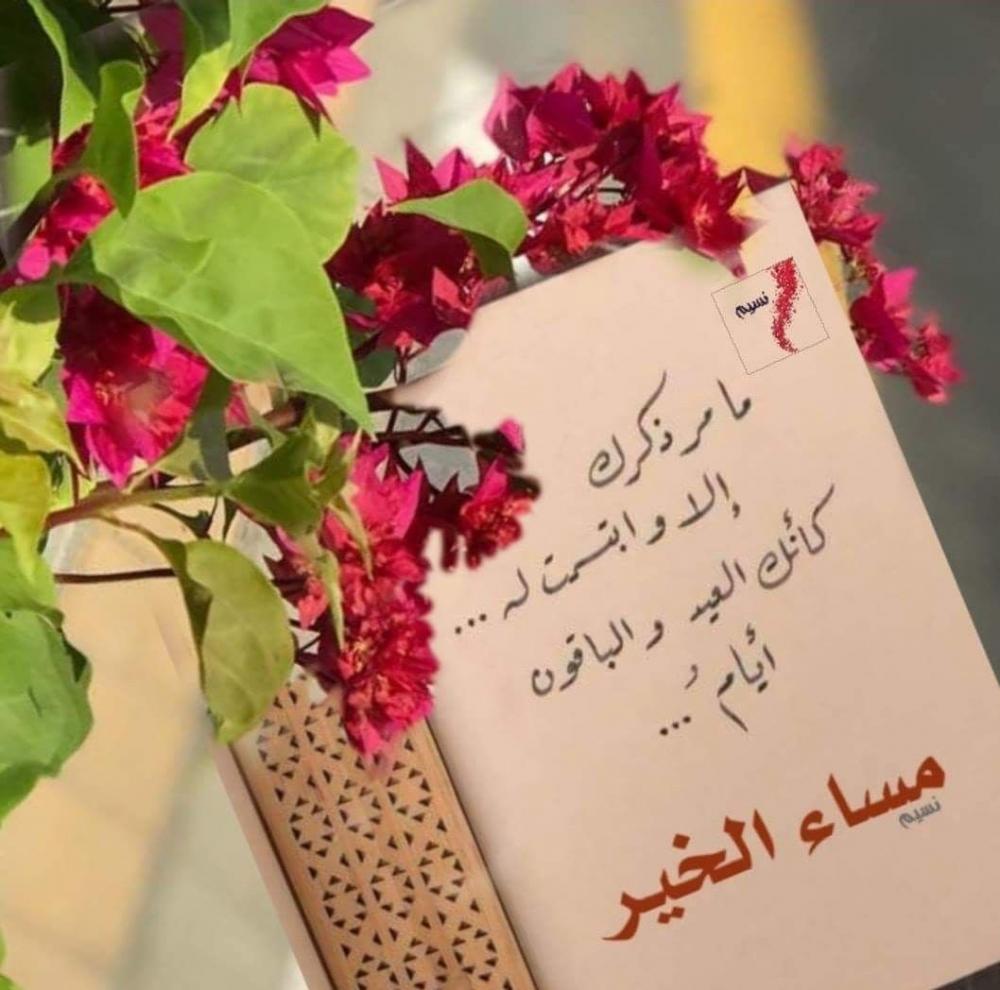 نسيم
ما مر ذكرك
إلا وابتسمت له ...
كأنك العيد والباقون
أيامُ ...
مساء الخير
نسيم